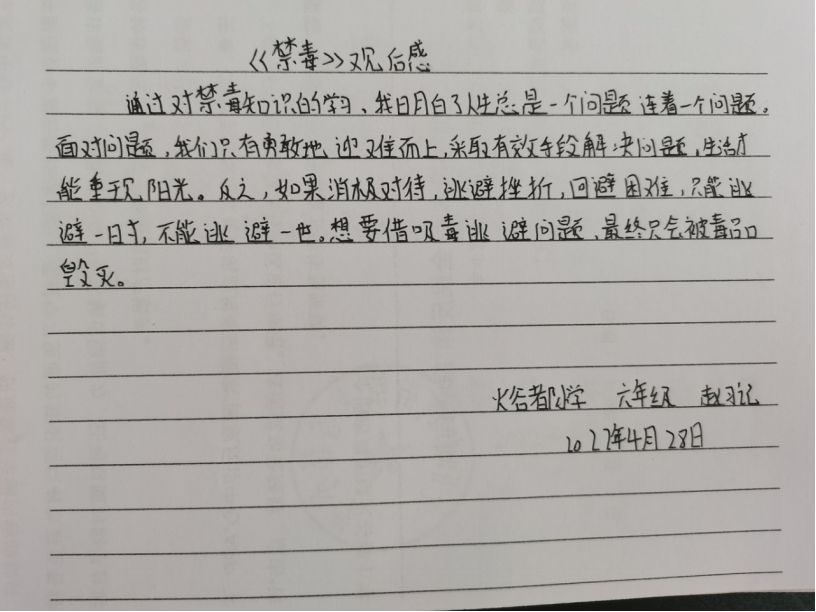 《禁毒》观后感
通过对禁毒知识的学习、我明白了人生总是一个问题连着一个问题。
面对问题,我们只有勇敢地迎难而上,采取有效手段解决问题,生活才
能重现阳光。反之,如果消极对待,逃避挫折,回避困难,只能逃
避一时,不能逃避一世。想要借吸毒逃避问题、最终只会被毒品
毁灭。
小学 六年级 赵
2022年4月28日